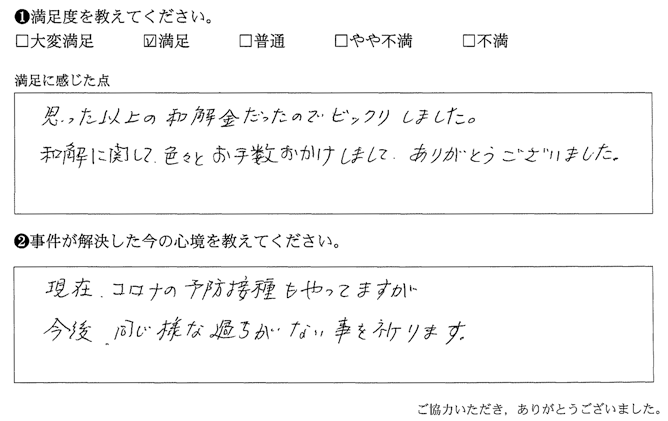 ❶満足度を教えてください。
□大変満足 ☑満足 □普通 □やや不満 □不満
満足に感じた点
思った以上の和解金だったのでビックリしました。
和解に関して、色々とお手数おかけしまして、ありがとうございました。
❷事件が解決した今の心境を教えてください。
現在、コロナの予防接種もやってますが
今後、同じ様な過ちがない事を祈ります。
ご協力いただき，ありがとうございました。